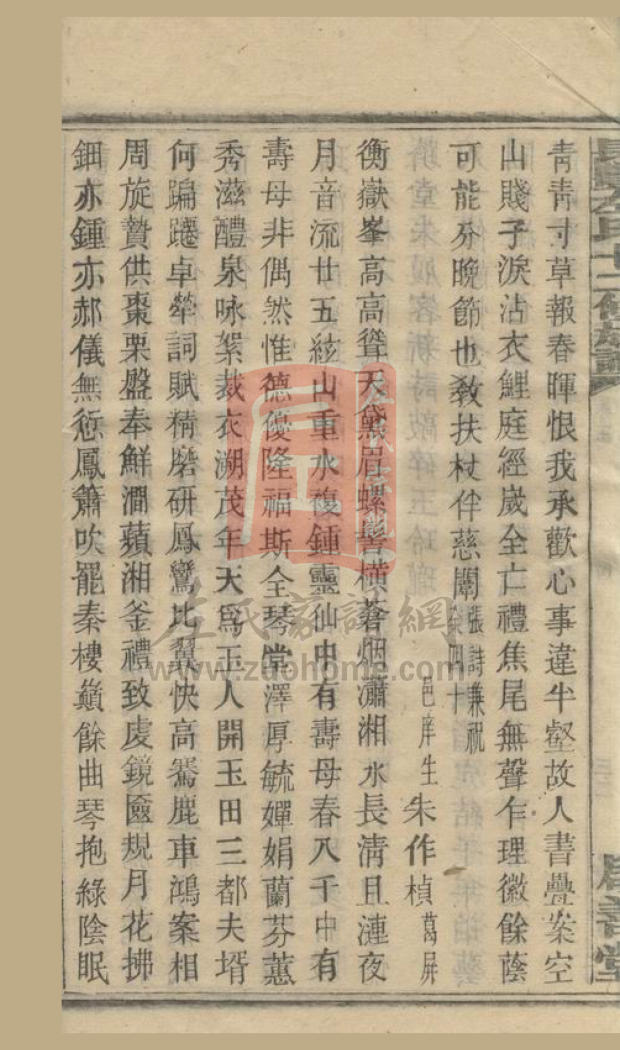 青青寸草報春暉恨我承歡心事違半壑故人書疊案空
山賤子淚沾衣鯉庭經歲全亡禮焦尾無聲乍理徽餘蔭
可能分晚節也教扶杖伴慈闈張詩兼祝榮四十
邑庠生朱作楨葛屏
衡嶽峯高高聳天黛眉螺髻橫蒼烟瀟湘水長淸且漣夜
月音流廿五絃山重水複鍾靈仙中有壽母春八千中有
壽母非偶然惟德優隆福斯全琴堂澤厚毓嬋娟蘭芬蕙
秀滋醴泉咏絮裁衣溯茂年天爲玉人開玉田三都夫壻
何蹁躚卓犖詞賦精磨研鳳鸞比翼快高騫鹿車鴻案相
周旋贄供棗栗盤奉鮮澗蘋湘釜禮致虔鏡奩規月花拂
鈿亦鍾亦郝儀無愆鳳簫吹罷秦樓巔餘曲琴抱綠陰眠
左氏十二修族譜
善堂
左氏家譜網
www.zuohome.com